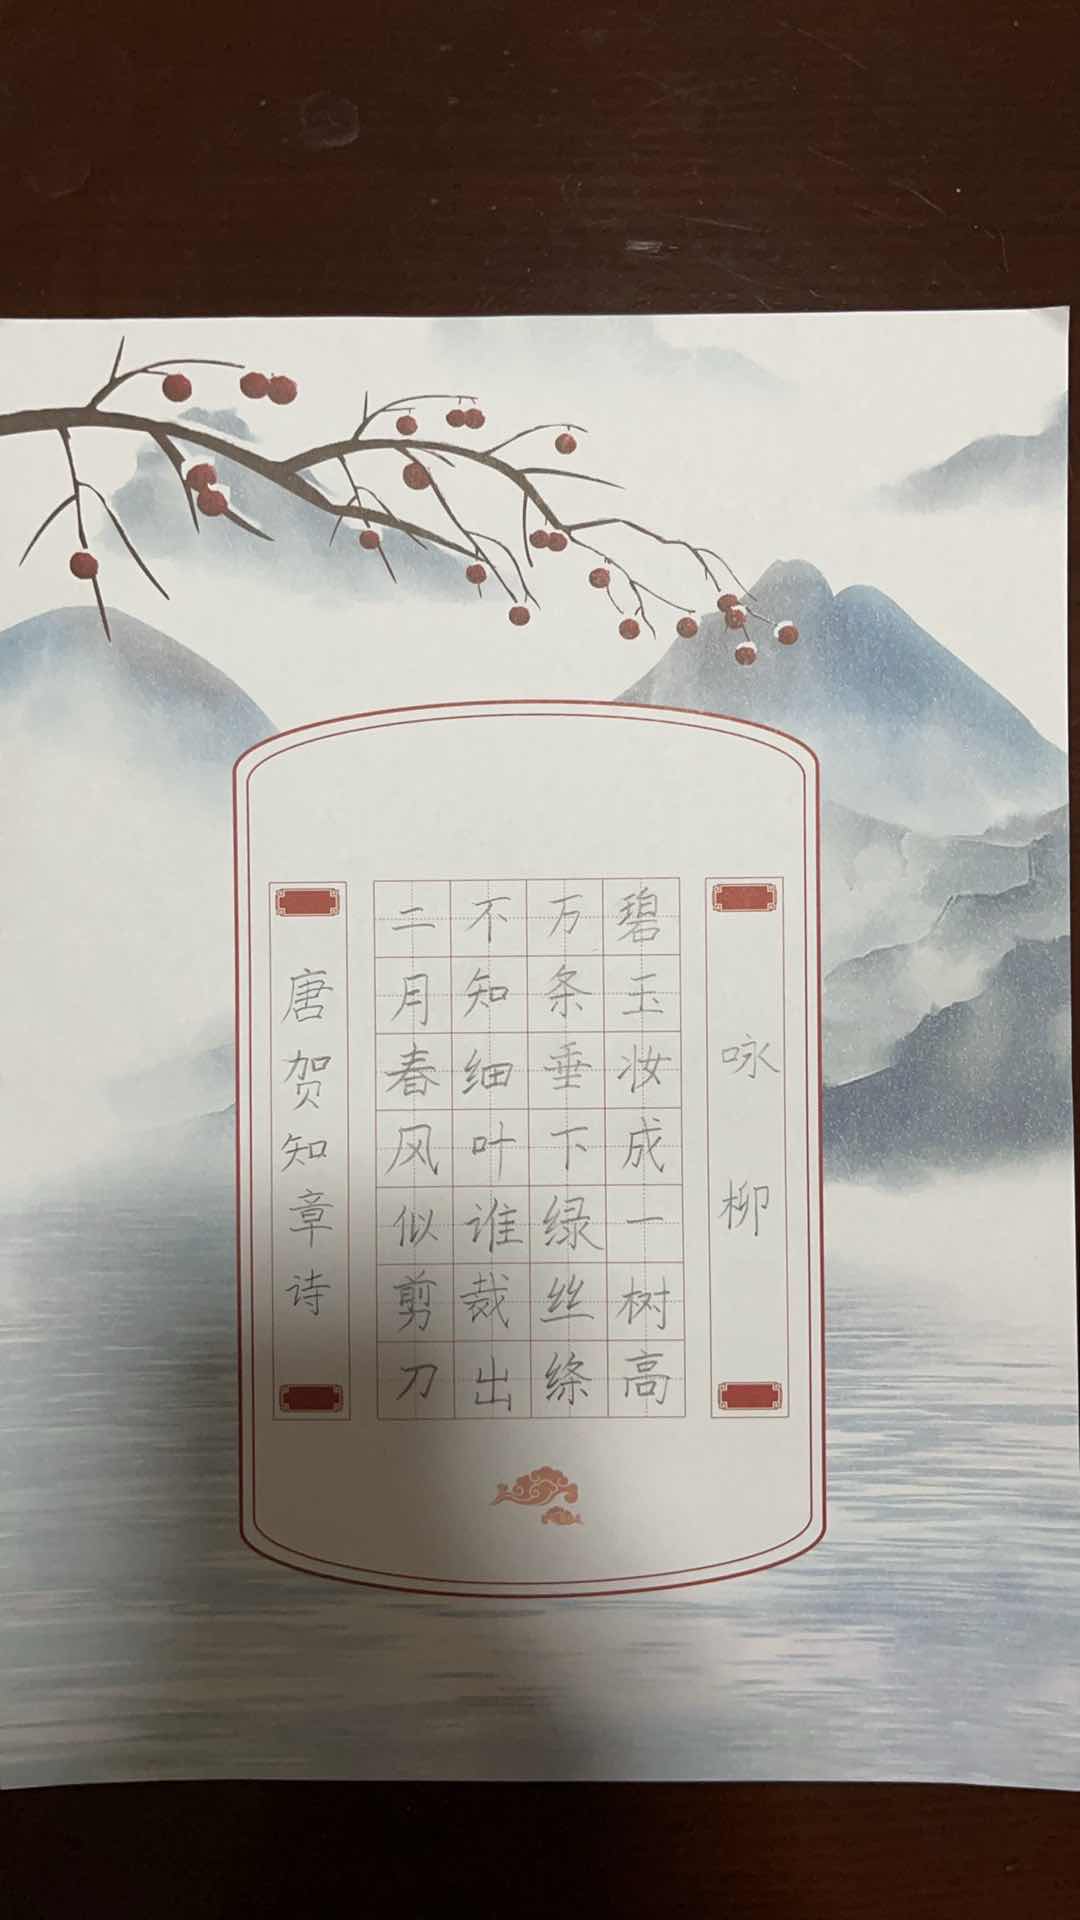 咏柳
碧玉妆成一树高
万条垂下绿丝绦
不知细叶谁裁出
二月春风似剪刀
唐贺知章诗